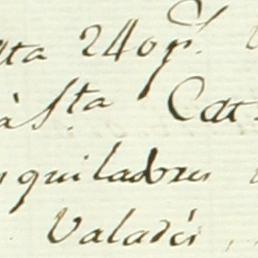 ta 240p.^s
à S.^ta Cat
quiladores
Valades